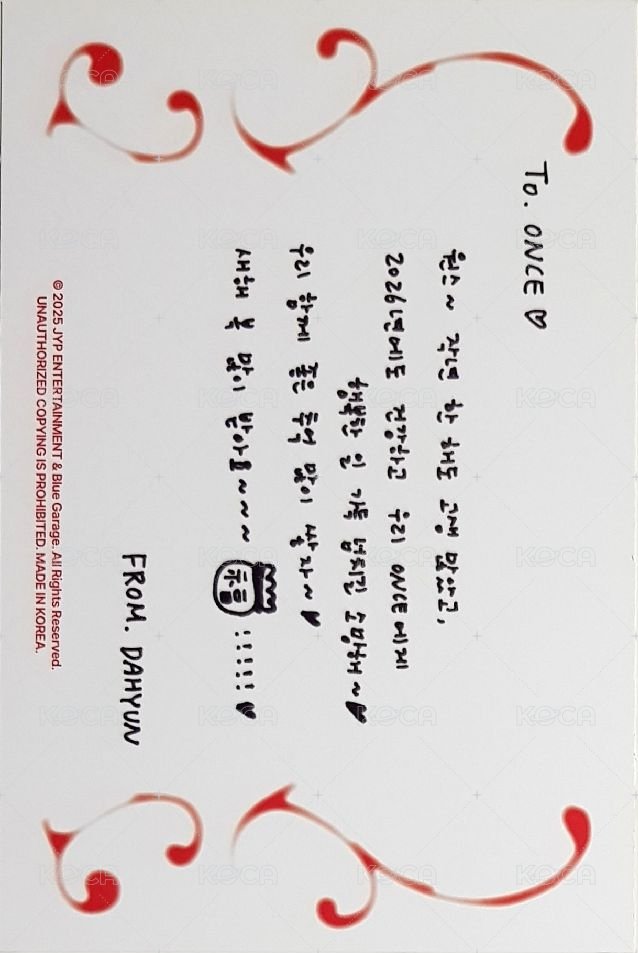 To. ONCE ♡
원스~ 작년 한 해도 고생 많았고,
2026년에도 건강하고 우리 ONCE에게
행복한 일 가득 넘치길 소망해~♥
우리 함께 좋은 추억 많이 쌓자~♥
새해 복 많이 받아요~~~ :::::: ♥
FROM. DAHYUN
© 2025 JYP ENTERTAINMENT & Blue Garage. All Rights Reserved.
UNAUTHORIZED COPYING IS PROHIBITED. MADE IN KOREA.
KOCA